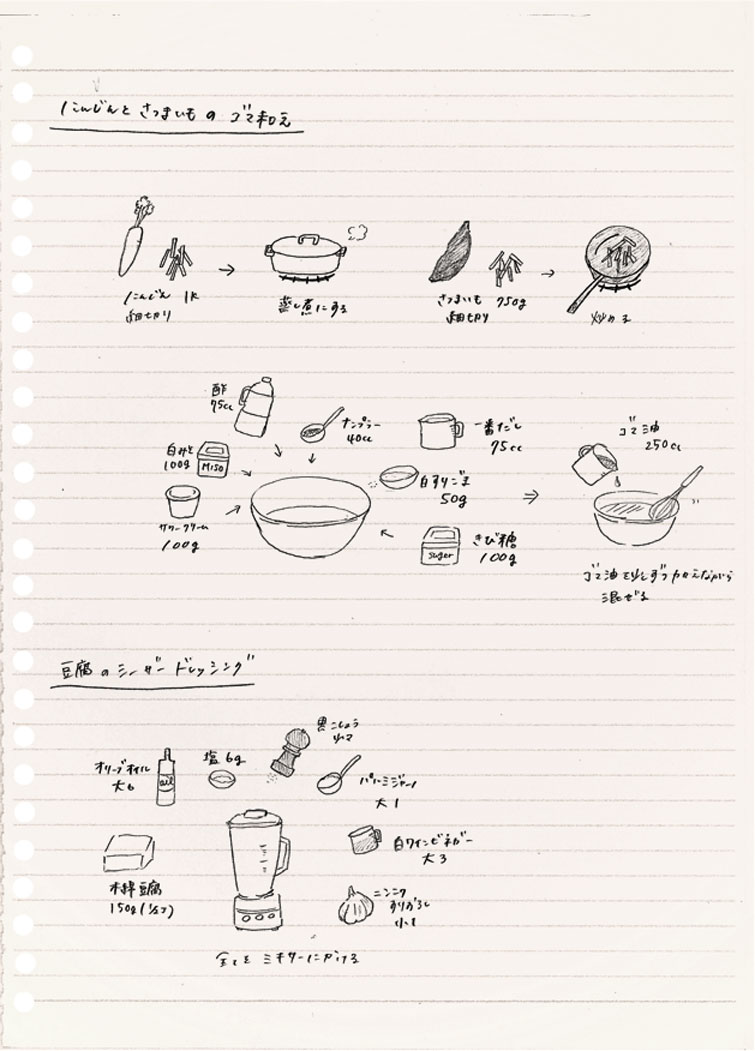 にんじんと さつまいも の ゴマ和え
にんじん 1k
細切り
蒸し煮にする
さつまいも 750g
細切り
炒める
酢
75cc
ナンプラー
40cc
一番だし
75cc
白みそ
100g
MISO
白すりごま
50g
サワークリーム
100g
きび糖
100g
suger
ゴマ油
250cc
ゴマ油を少しずつ加えながら
混ぜる
豆腐のシーザードレッシング
オリーブオイル
大6
oil
塩 6g
黒こしょう
少々
パルミジャーノ
大1
白ワインビネガー
大3
木綿豆腐
150g(1/2コ)
ニンニク
すりおろし
小1
全てを ミキサーにかける